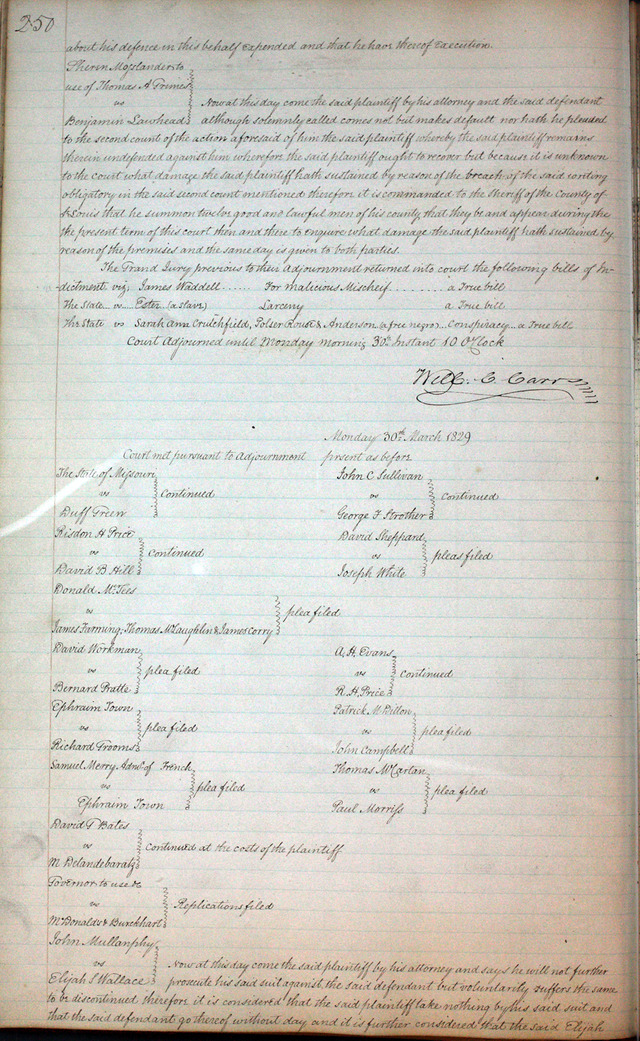 250
about his defence in this behalf expended and that he have thereof Execution.
use of Thomas A Grimes
vs
Benjamin Lawhead
Now at this day come the said plaintiff by his attorney and the said defendant
although solemnly called comes not but makes default nor hath he pleaded
to the second count of the action aforesaid of him the said plaintiff whereby the said plaintiff remains
therein undefended against him wherefore the said plaintiff ought to recover but because it is unknown
to the court what damage the said plaintiff hath sustained by reason of the breach of the said writing
obligatory in the said second count mentioned therefore it is commanded to the Sheriff of the County of
St Louis that he summon twelve good and lawful men of his county that they be and appear during the
the present term of this court then and there to enquire what damage the said plaintiff hath sustained by
reason of the premises and the same day is given to both parties.
The Grand Jury previous to their Adjournment returned into court the following bills of In-
dictment viz; James Waddell ...... For malicious Mischief ........ a True bill
The State vs Ester (a slave) Larceny a True bill
The State vs Sarah Ann Crutchfield, & Anderson (a free negro) .. Conspiracy .. a True bill
Court Adjourned until Monday morning 30th Instant 10 O'Clock
Will. C. Carr
Monday 30th March 1829
Court met pursuant to Adjournment present as before
The State of Missouri
vs
Duff Green
Continued
John C Sullivan
vs
George F Strother
Continued
Risdon H Price
vs
David B Hill
Continued
David Sheppard
vs
Joseph White
pleas filed
Donald McTees
vs
James Farming, Thomas McLaughlin & James Corry
plea filed
David Workman
vs
Bernard Pratte
plea filed
A. H. Evans
vs
R. H. Price
Continued
Ephraim Town
vs
Richard Grooms
plea filed
Patrick M Dillon
vs
John Campbell
plea filed
Samuel Merry Admr. of French
vs
Ephraim Town
plea filed
Thomas McCartan
vs
Paul Morriss
plea filed
David G Bates
vs
M Delandebaratz
Continued at the costs of the plaintiff
Governor to use &c
vs
McDonald & Burckhart
Replications filed
John Mullanphy
vs
Elijah S Wallace
Now at this day come the said plaintiff by his attorney and says he will not further
prosecute his said suit against the said defendant but voluntarily suffers the same
to be discontinued therefore it is considered that the said plaintiff take nothing by his said suit and
that the said defendant go thereof without day and it is further considered that the said Elijah